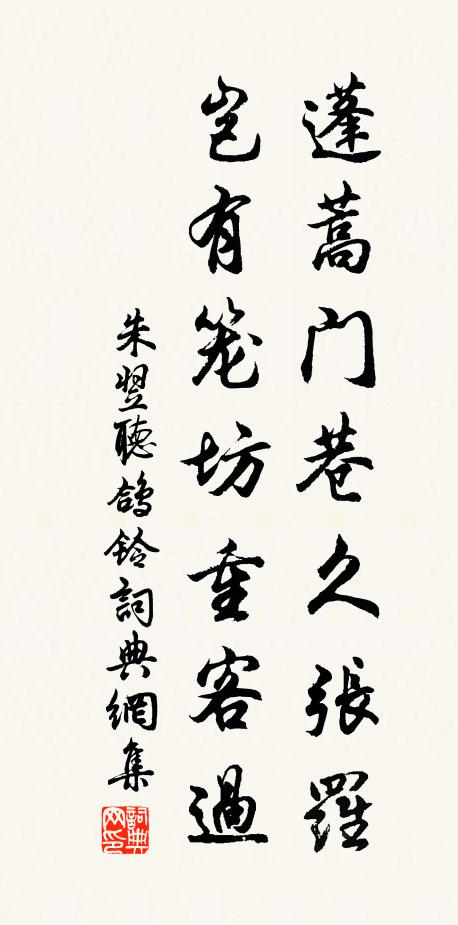 蓬蒿門巷久張羅
岂有笼坊重客過
朱翌聽鴿鈴詞典網集
詞典网印